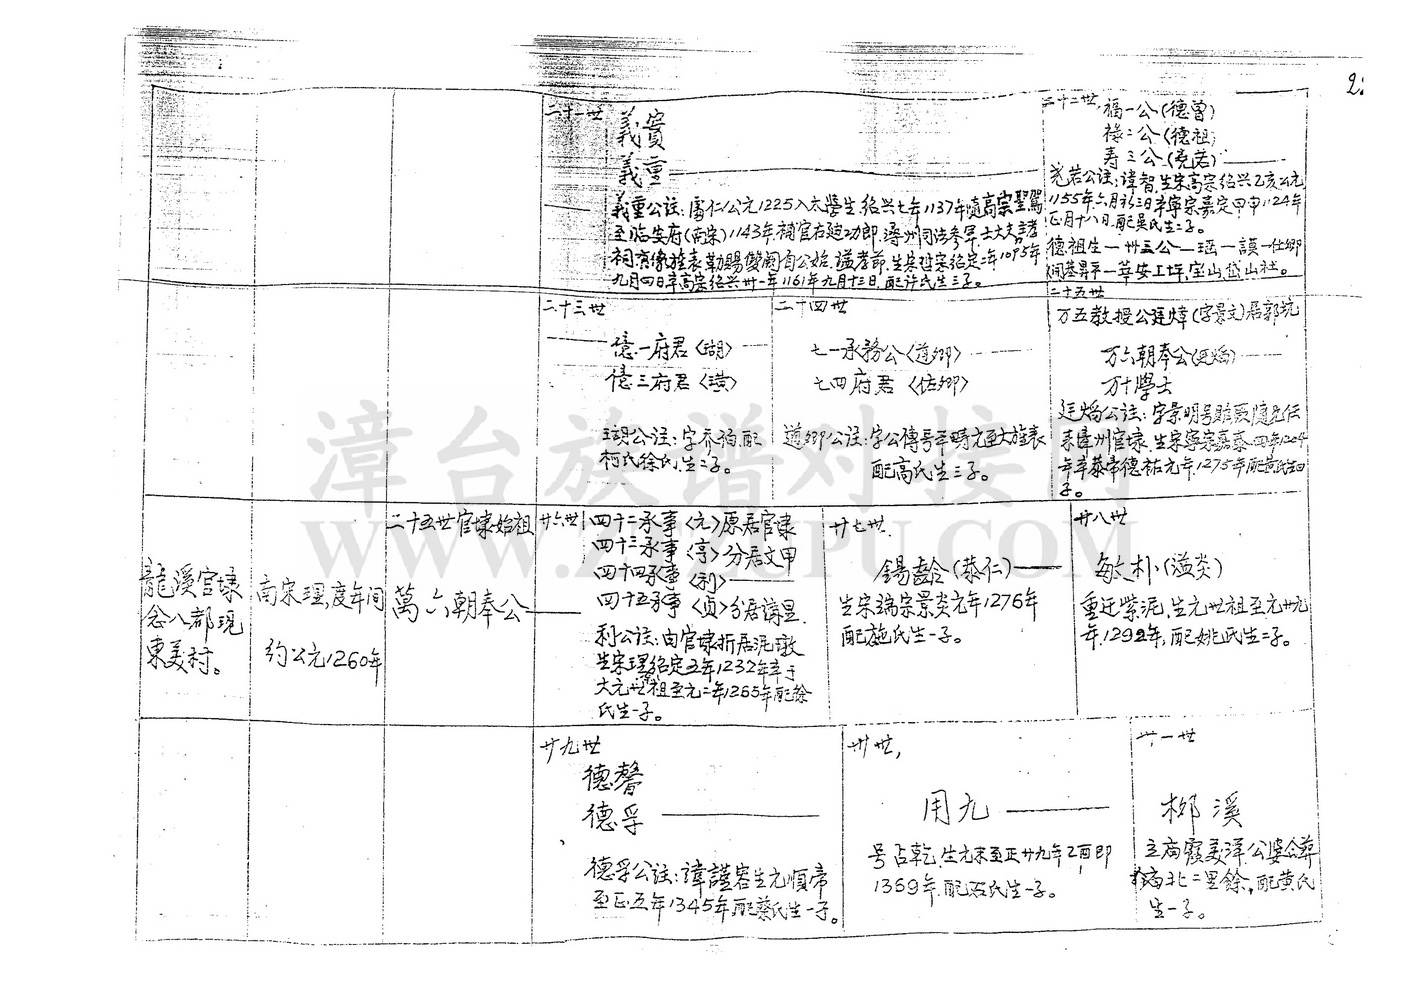 2:
二十一世
義實
義重
義重公注:唐仁公元1225入太學生.紹兴七年1137年随高宗聖駕
至临安府(南宋)1143年.補官右廸功郎.漳州司法参軍.士大夫言孝
祠京像旌表勒賜雙阙自公始.謚孝節.生宋 二年1095年
九月四日卒高宗绍兴卅一年1161年九月十三日.配许氏生三子。
二十二世.
福一公(德曾)
祿二公(德祖)
寿三公(尧若)
尧若公注:諱智.生宋高宗绍兴乙亥公元
1155年六月初三日卒寧宗嘉定甲申1124年
正月十八日.配吴氏生二子。
德祖生一卅三公—瑶一謨一仕卿
闻基昇平一莘安上坪,宝山,岱山社。
二十三世
億一府君〈瑚〉
億三府君〈璜〉
瑚公注:字乔伯.配
柯氏徐氏.生二子。
二十四世
七一承務公〈道卿〉
七四府君〈佐卿〉
道卿公注:字公傳号平畴元至大旌表
配高氏生三子。
二十五世
万五教授公廷煒(字景文)居郭坑
万六朝奉公(廷焰)
万十學士
廷焰公注:字景明号 随兄伝
来漳州官埭.生宋寧宗嘉泰四年1204
年卒恭帝德祐元年.1275年配黄氏生四
子。
龍溪官埭
念八都現
東美村。
南宋理,度年间
约公元1260年
二十五世官埭始祖
萬六朝奉公
廿六世
四十二承事〈元〉原居官埭
四十三承事〈亨〉分居文甲
四十四承事〈利〉
四十五承事〈贞〉分居諄里.
利公注:由官埭折居泥墩
生宋理绍定五年1232年卒于
大元世祖至元二年1265年配餘
氏生一子。
廿七世.
錫齡(恭仁)
生宋端宗景炎元年1276年
配施氏生一子。
廿八世
敏朴(溢炎)
重迁紫泥.生元世祖至元廿九
年.1292年,配姚氏生二子。
廿九世
德馨
德孚
德孚公注:諱謹容生元順帝
至正五年1345年配蔡氏生一子。
卅世,
用九
号占乾.生元末至正廿九年乙酉即
1369年.配石氏生一子。
卅一世
柳溪
立庙霞美洋公婆合葬
於庙北二里餘,配黄氏
生一子。
漳台族谱对接网
WWW.ZTZUPU.COM